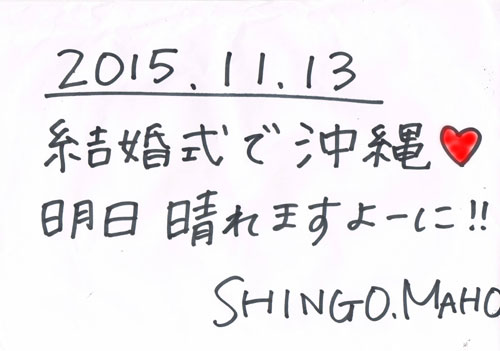 2015.11.13
結婚式で沖縄♥
明日 晴れますよーに!!
SHINGO.MAHO